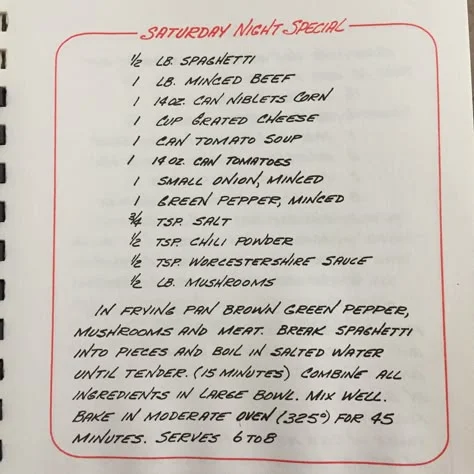 SATURDAY NIGHT SPECIAL
½ LB. SPAGHETTI
1 LB. MINCED BEEF
1 14 OZ. CAN NIBLETS CORN
1 CUP GRATED CHEESE
1 CAN TOMATO SOUP
1 14 OZ. CAN TOMATOES
1 SMALL ONION, MINCED
1 GREEN PEPPER, MINCED
¾ TSP. SALT
½ TSP. CHILI POWDER
½ TSP. WORCESTERSHIRE SAUCE
½ LB. MUSHROOMS
IN FRYING PAN BROWN GREEN PEPPER,
MUSHROOMS AND MEAT. BREAK SPAGHETTI
INTO PIECES AND BOIL IN SALTED WATER
UNTIL TENDER. (15 MINUTES) COMBINE ALL
INGREDIENTS IN LARGE BOWL. MIX WELL.
BAKE IN MODERATE OVEN (325°) FOR 45
MINUTES. SERVES 6 TO 8